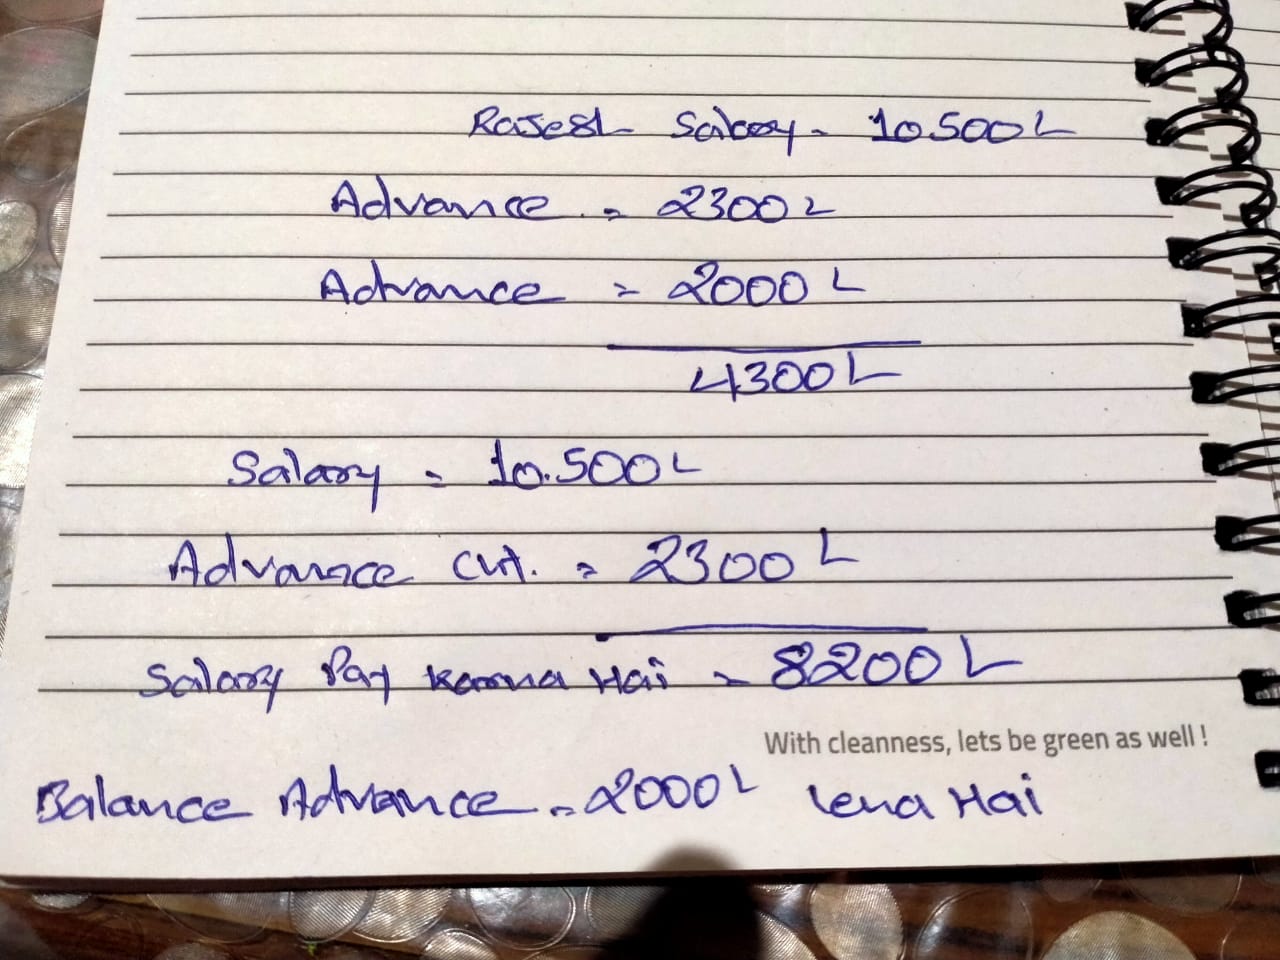 Rajesh Salary - 10.500/-
Advance = 2300/-
Advance = 2000/-
4300/-
Salary = 10.500/-
Advance cut. = 2300/-
Salary Pay Karna Hai = 8200/-
With cleanness, lets be green as well !
Balance Advance = 2000/- lena Hai